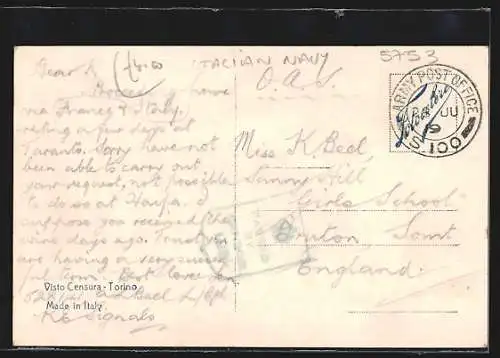 £4.50
ITALIAN NAVY
5753
Dear K.
Proceeding home
via France & Italy.
resting a few days at
Taranto. Sorry have not
been able to carry out
your request, not possible
to do so at Haifa. I
suppose you received the
wire days ago. Trust you
are having a very succes
ful term. Best love from
Beel L/Cpl
R. Signals
Visto Censura - Torino
Made in Italy
O. A. S.
ARMY POST OFFICE
JU
9
S. 100
Miss K. Beel,
Sunny Hill
Girls School
Bruton, Somt
England.